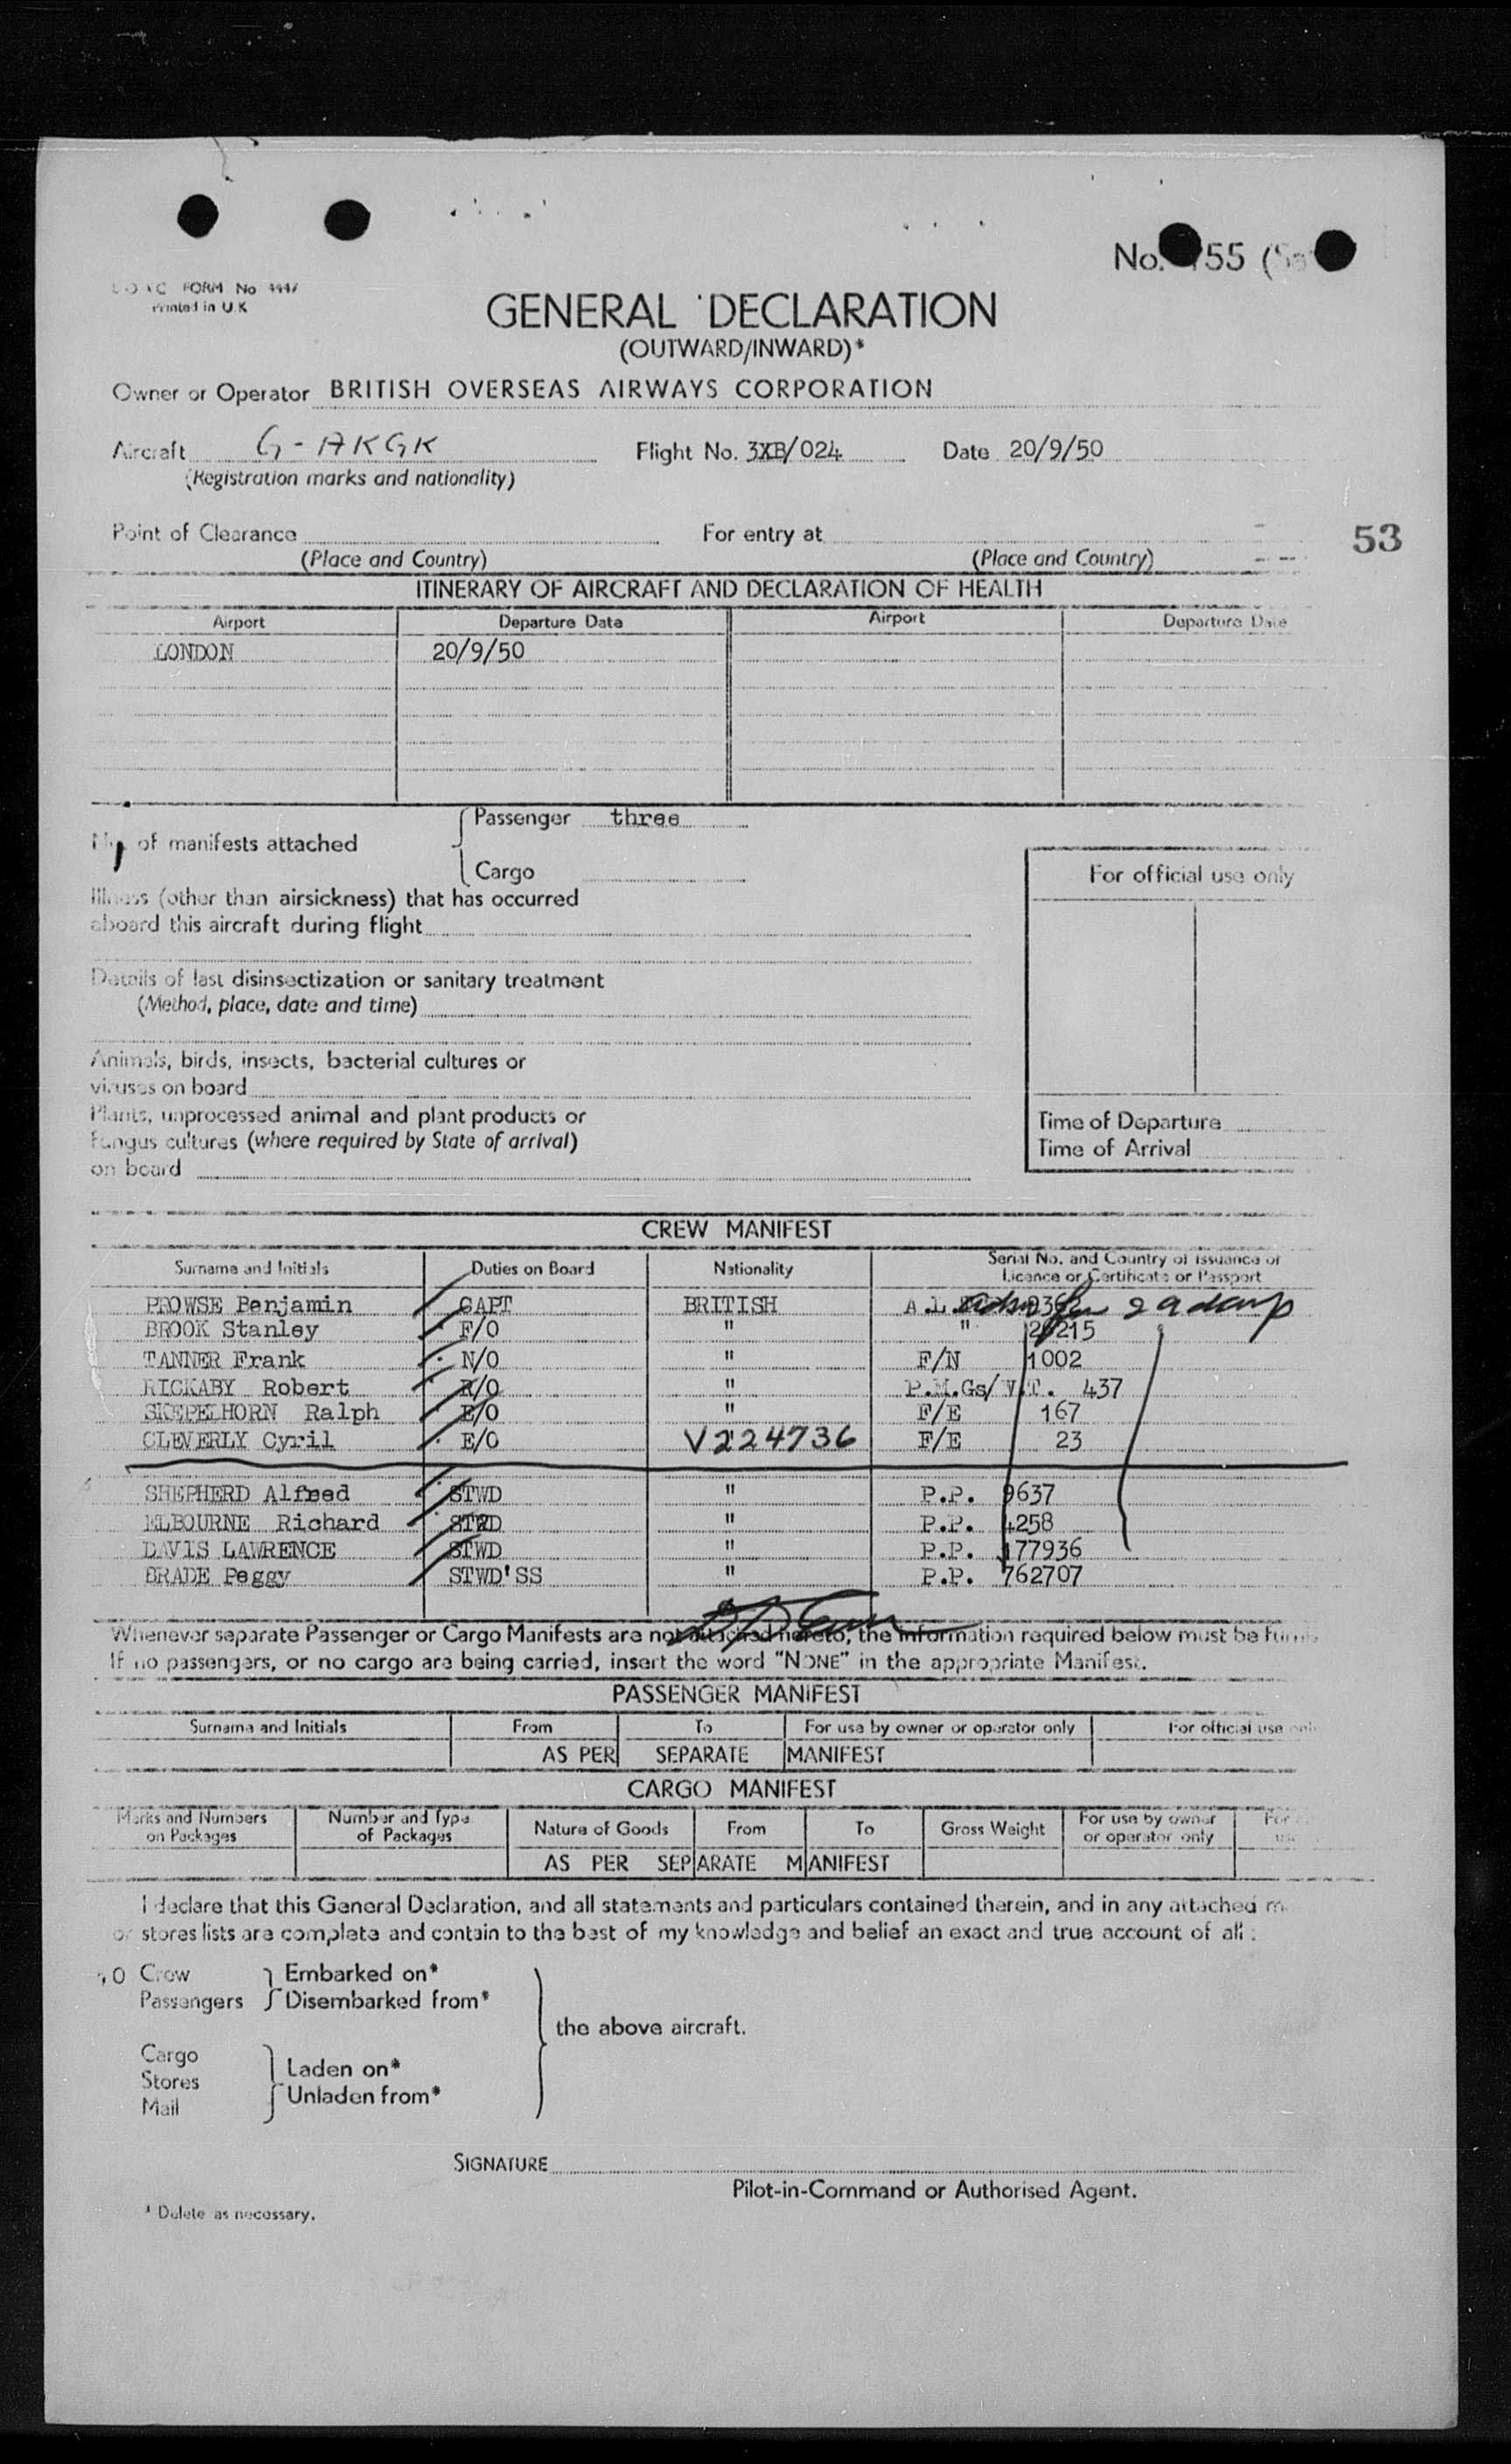 No. 55
FORM No
Printed in U.K
GENERAL DECLARATION
(OUTWARD/INWARD)*
Owner or Operator BRITISH OVERSEAS AIRWAYS CORPORATION
Aircraft G-AKGK Flight No. 3XB/024 Date 20/9/50
(Registration marks and nationality)
Point of Clearance For entry at
53
(Place and Country) (Place and Country)
ITINERARY OF AIRCRAFT AND DECLARATION OF HEALTH
Airport Departure Date Airport Departure Date
LONDON 20/9/50
Passenger three
No. of manifests attached
Cargo
For official use only
Illness (other than airsickness) that has occurred
aboard this aircraft during flight
Details of last disinsectization or sanitary treatment
(Method, place, date and time)
Animals, birds, insects, bacterial cultures or
viruses on board
Plants, unprocessed animal and plant products or
fungus cultures (where required by State of arrival)
on board
Time of Departure
Time of Arrival
CREW MANIFEST
Surname and Initials Duties on Board Nationality Serial No. and Country of Issuance of
Licence or Certificate or Passport
PROWSE Benjamin CAPT BRITISH A.L.
BROOK Stanley F/O " " 20215
TANNER Frank N/O " F/N 1002
RICKABY Robert R/O " P.M.Gs/ V.T. 437
SKEPELHORN Ralph E/O " F/E 167
CLEVERLY Cyril E/O V224736 F/E 23
SHEPHERD Alfred STWD " P.P. 9637
ELBOURNE Richard STWD " P.P. 4258
DAVIS LAWRENCE STWD " P.P. 177936
BRADE Peggy STWD'SS " P.P. 762707
Whenever separate Passenger or Cargo Manifests are not attached hereto, the information required below must be
If no passengers, or no cargo are being carried, insert the word "NONE" in the appropriate Manifest.
PASSENGER MANIFEST
Surname and Initials From To For use by owner or operator only For official use only
AS PER SEPARATE MANIFEST
CARGO MANIFEST
Marks and Numbers on Packages Number and Type of Packages Nature of Goods From To Gross Weight For use by owner or operator only For
AS PER SEPARATE MANIFEST
I declare that this General Declaration, and all statements and particulars contained therein, and in any attached
or stores lists are complete and contain to the best of my knowledge and belief an exact and true account of all :
10 Crew Embarked on*
Passengers Disembarked from*
the above aircraft.
Cargo
Laden on*
Stores
Unladen from*
Mail
SIGNATURE
Pilot-in-Command or Authorised Agent.
* Delete as necessary.